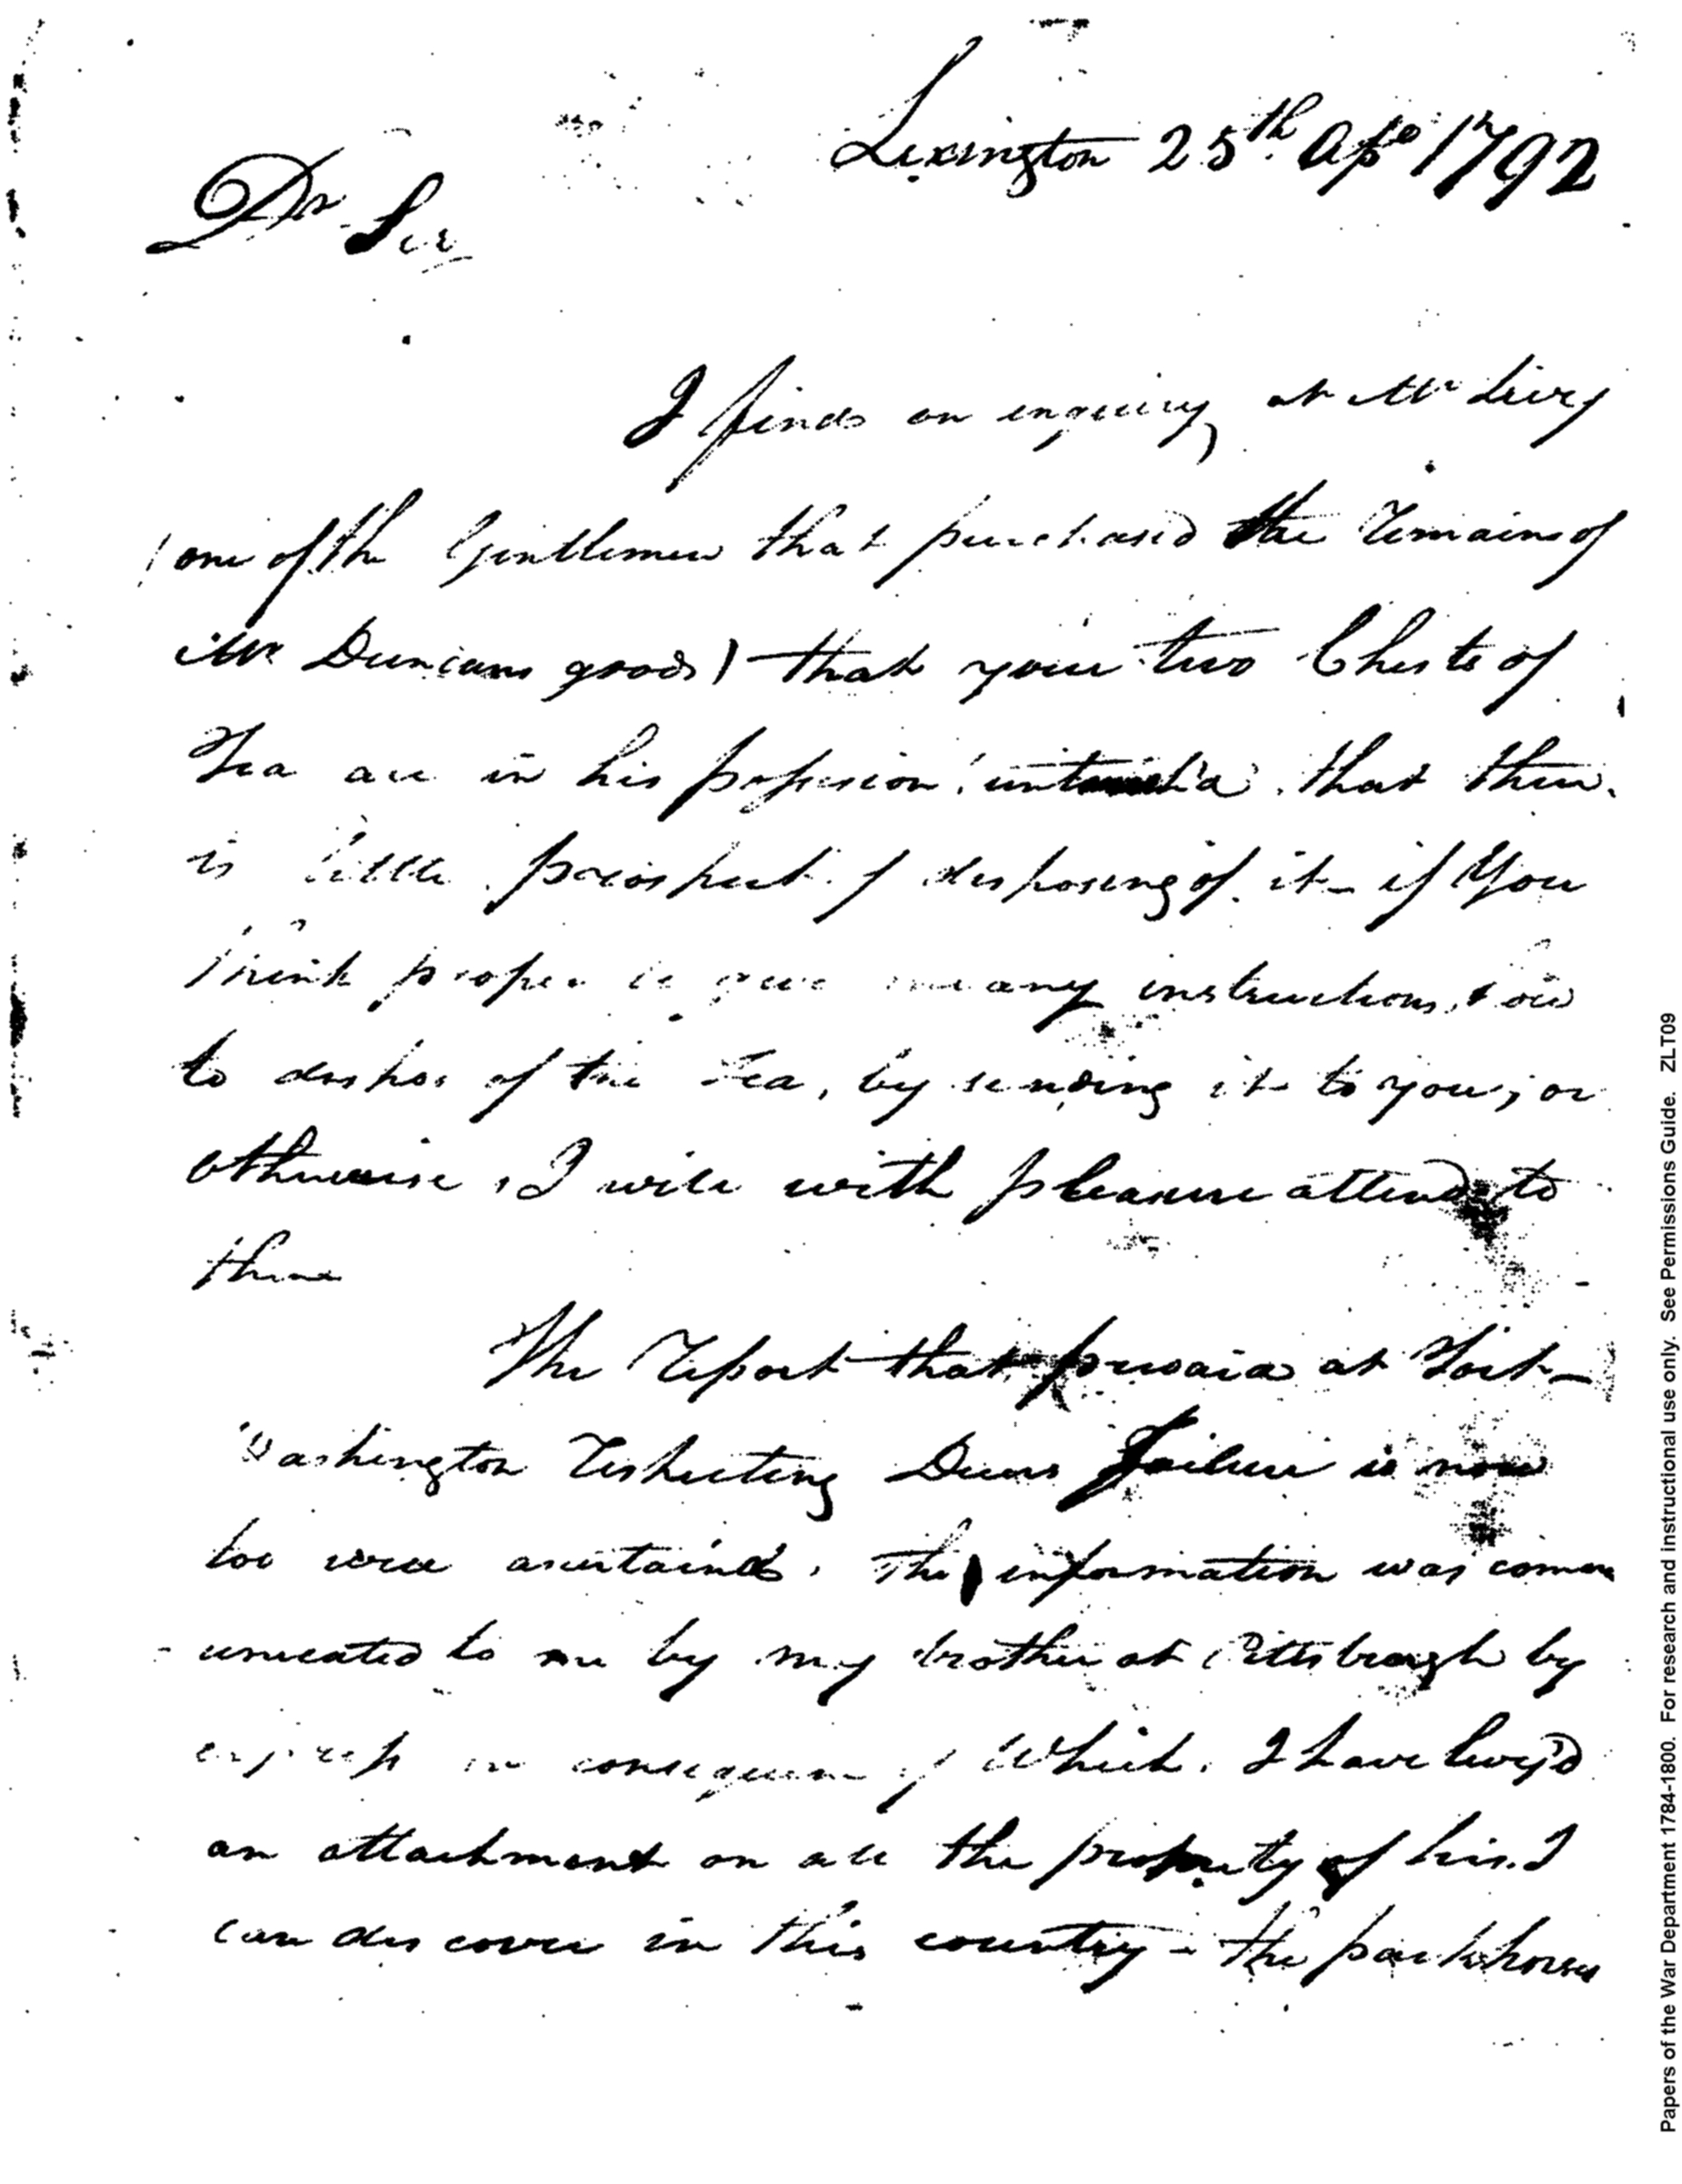 Lexington 25th Apl 1792
Dr Sir
I find on inquiry, at Mr Levy
(one of the Gentlemen that purchased the remains of
Mr Duncans goods) that your two Chests of
Tea are in his possesion, that there
is little prospect of disposing of it - if You
think proper to give me any instructions, how
to dispos of the Tea, by sending it to you, or
otherwise, I will with pleasure attend to
them
The report that prevaild at Fort-
Washington respecting Duers Failure is now
too well ascertaind, The information was comm
-unicated to me by my brother at Pittsbourgh by
express in consequence of Which, I have levy'd
an attachment on all the property of his I
can discover in this country - the packhorses
Papers of the War Department 1784-1800. For research and instructional use only. See Permissions Guide. ZLT09